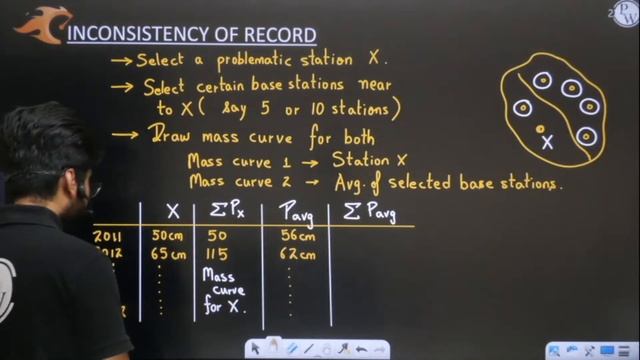 INCONSISTENCY OF RECORD
→ Select a problematic station X.
→ Select certain base stations near
to X ( say 5 or 10 stations)
→ Draw mass curve for both
Mass curve 1 → Station X
Mass curve 2 → Avg. of selected base stations.
X
X ΣPx Pavg ΣPavg
2011 50cm 50 56cm
2012 65cm 115 62cm
Mass
curve
for X.